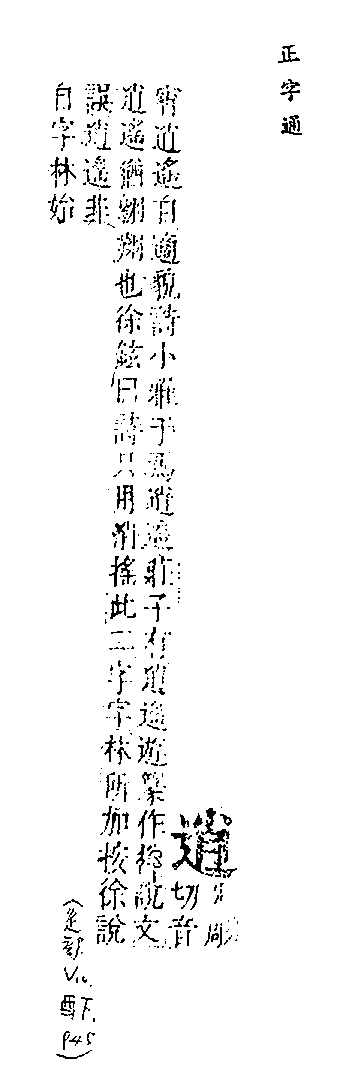 正字通
逍
切音
宵逍遙自適貌詩小雅于焉逍遙莊子有逍遙遊篆作說文
逍遙猶翱翔也徐鉉曰詩只用消搖此二字字林所加按徐說
誤逍遙非
自字林始
(辵部 V10, 酉下, P45)